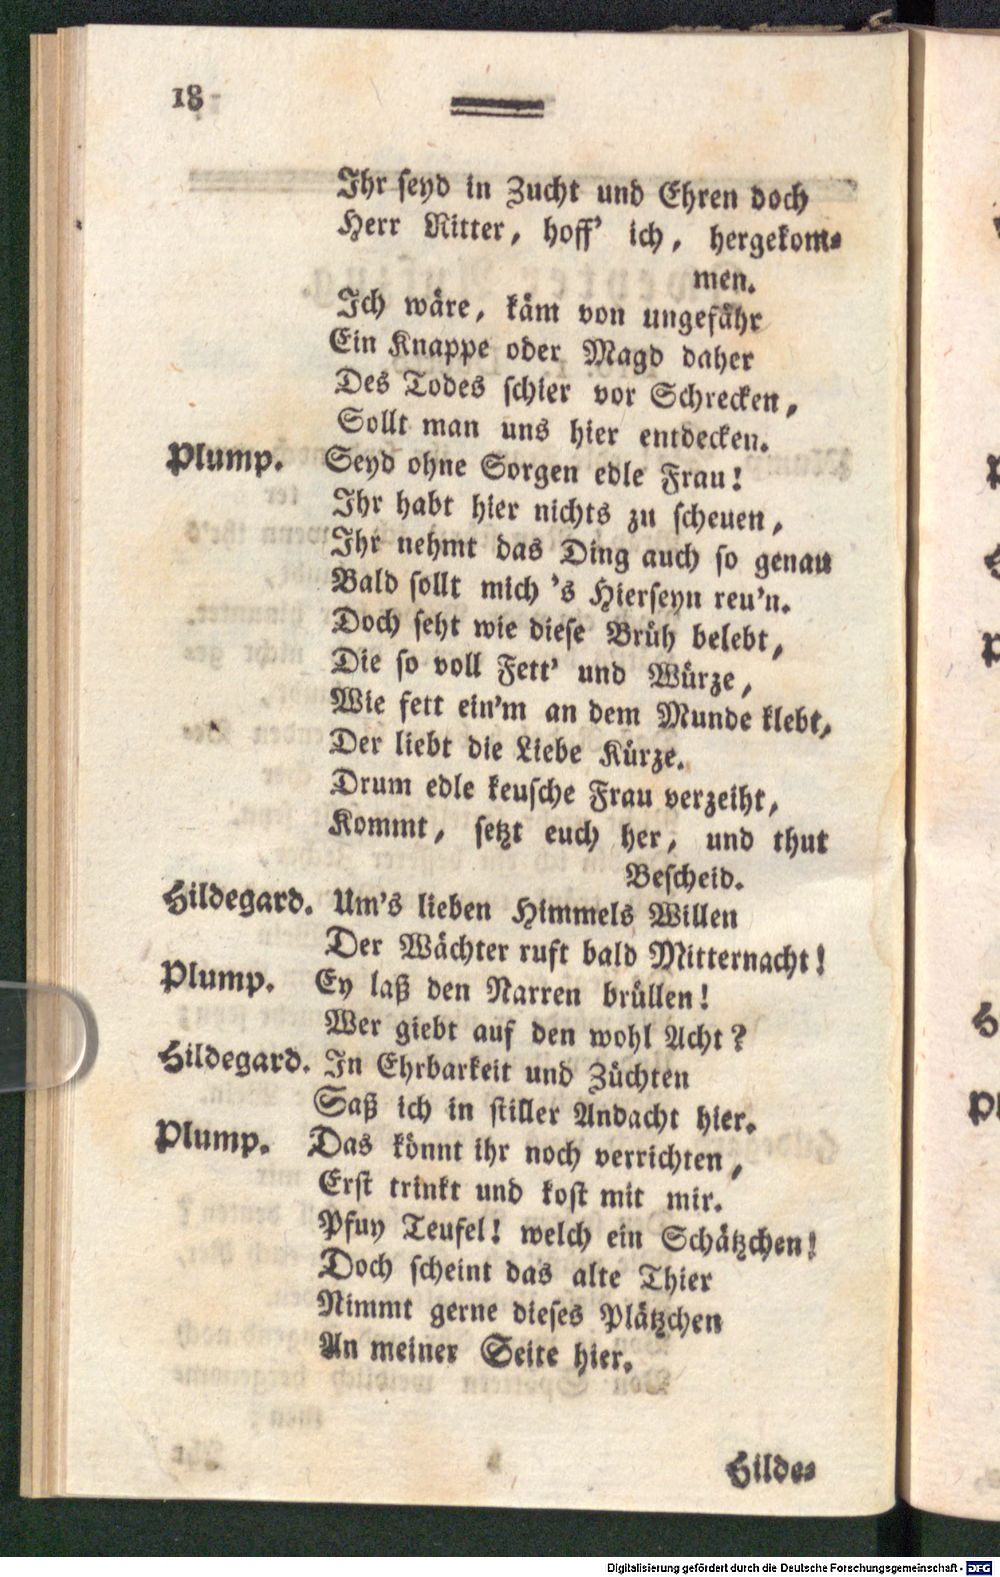 18
Ihr seyd in Zucht und Ehren doch
Herr Ritter, hoff' ich, hergekom-
men.
Ich wäre, käm von ungefähr
Ein Knappe oder Magd daher
Des Todes schier vor Schrecken,
Sollt man uns hier entdecken.
Plump. Seyd ohne Sorgen edle Frau!
Ihr habt hier nichts zu scheuen,
Ihr nehmt das Ding auch so genau
Bald sollt mich 's Hierseyn reu'n.
Doch seht wie diese Brüh belebt,
Die so voll Fett' und Würze,
Wie fett ein'm an dem Munde klebt,
Der liebt die Liebe Kürze.
Drum edle keusche Frau verzeiht,
Kommt, setzt euch her, und thut
Bescheid.
Hildegard. Um's lieben Himmels Willen
Der Wächter ruft bald Mitternacht!
Plump. Ey laß den Narren brüllen!
Wer giebt auf den wohl Acht?
Hildegard. In Ehrbarkeit und Züchten
Saß ich in stiller Andacht hier.
Plump. Das könnt ihr noch verrichten,
Erst trinkt und kost mit mir.
Pfuy Teufel! welch ein Schätzchen!
Doch scheint das alte Thier
Nimmt gerne dieses Plätzchen
An meiner Seite hier.
Hilde-
Digitalisierung gefördert durch die Deutsche Forschungsgemeinschaft - DFG